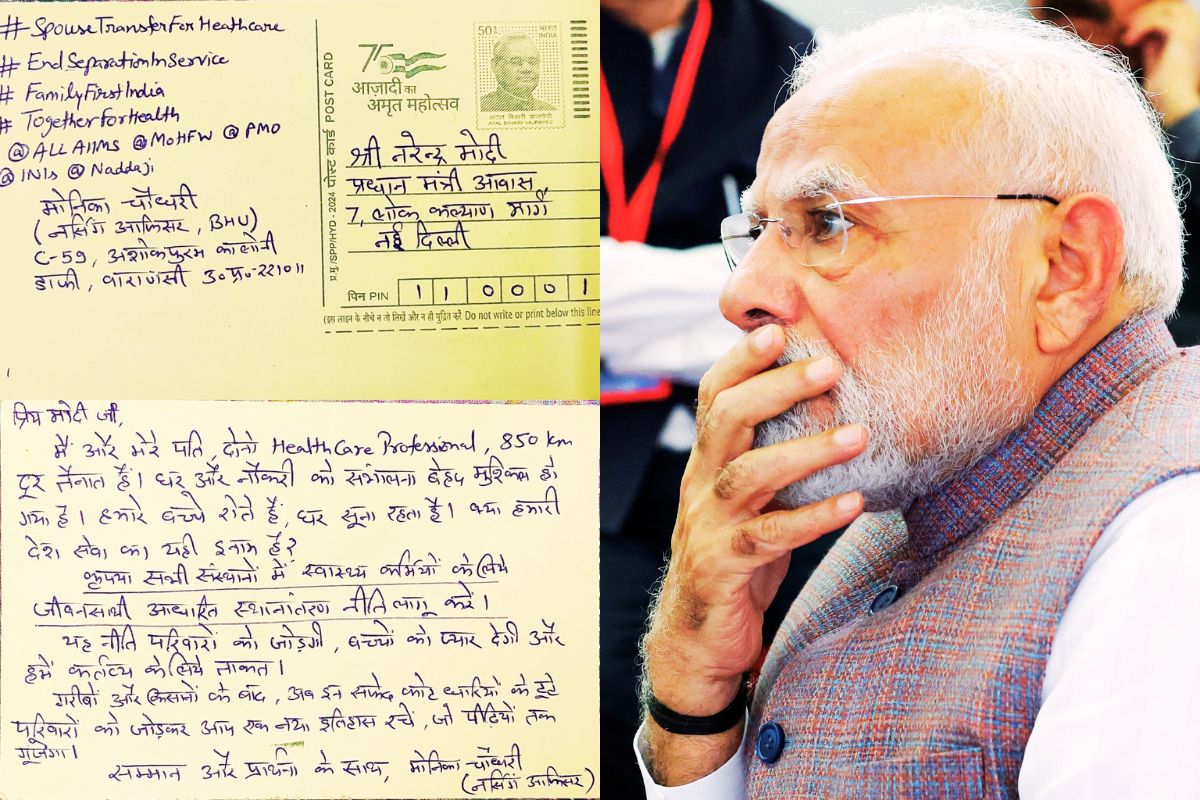 #SpouseTransferForHealthcare
#EndSeparationInService
#FamilyFirstIndia
#TogetherforHealth
@ALLAIIMS @MoHFW @PMO
@INIs @Naddaji
मोनिका चौधरी
(नर्सिंग आफिसर, BHU)
C-59, अशोकपुरम कालोनी
डाफी, वाराणसी उ०प्र०-221011
प्र.मु./SPP/HYD - 2024 पोस्ट कार्ड POST CARD
75
आज़ादी का
अमृत महोत्सव
501
भारत
INDIA
अटल बिहारी वाजपेयी
ATAL BIHARI VAJPAYEE
श्री नरेन्द्र मोदी
प्रधान मंत्री आवास
7, लोक कल्याण मार्ग
नई दिल्ली
पिन PIN 1 1 0 0 0 1
(इस लाइन के नीचे न तो लिखें और न ही मुद्रित करें Do not write or print below this line
प्रिय मोदी जी,
मैं और मेरे पति, दोनो HealthCare Professional, 850 km
दूर तैनात हैं। घर और नौकरी को संभालना बेहद मुश्किल हो
गया है। हमारे बच्चे रोते हैं, घर सूना रहता है। क्या हमारी
देश सेवा का यही इनाम है?
कृपया सभी संस्थानों में स्वास्थ्य कर्मियों के लिये
जीवनसाथी आधारित स्थानांतरण नीति लागू करें।
यह नीति परिवारों को जोड़ेगी, बच्चों को प्यार देगी और
हमें कर्तव्य के लिये ताकत।
गरीबों और किसानों के बाद, अब इन सफेद कोट धारियों के टूटे
परिवारों को जोड़कर आप एक नया इतिहास रचें, जो पीढ़ियों तक
गूंजेगा।
सम्मान और प्रार्थना के साथ, मोनिका चौधरी
(नर्सिंग आफिसर)